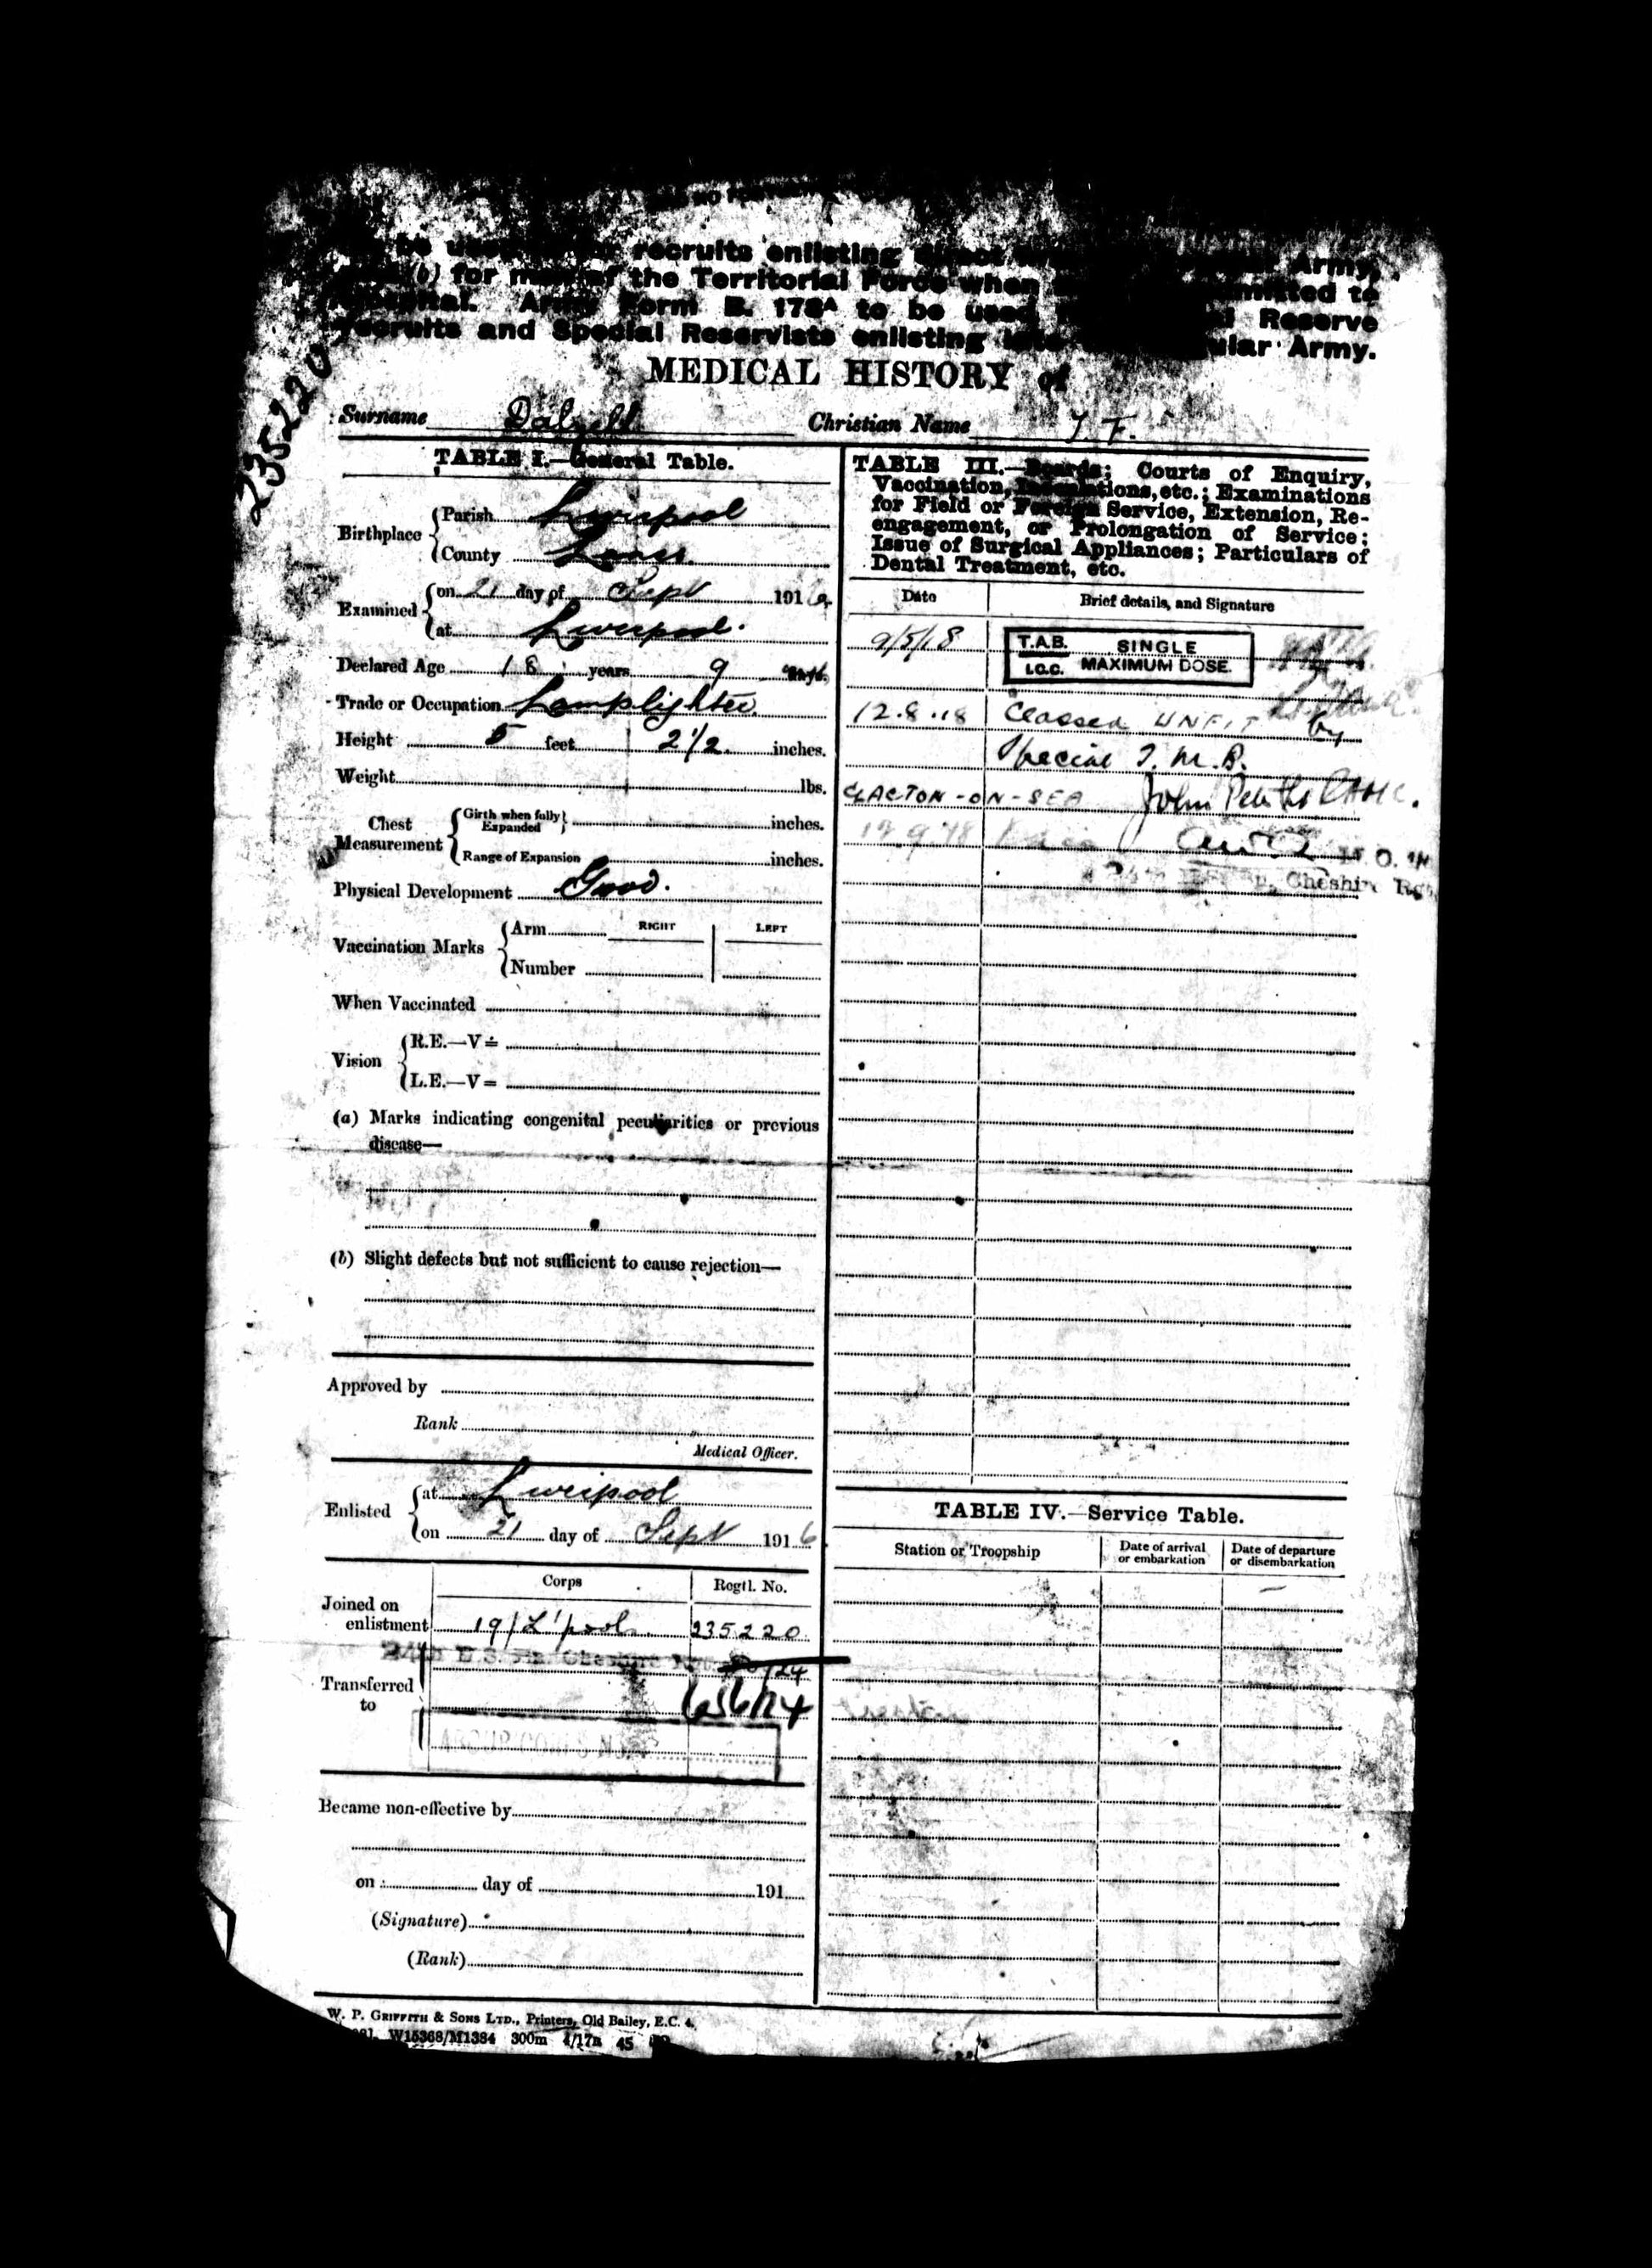 recruits enlisting direct Army,
(b) for men of the Territorial Force when admitted to
Hospital. Army Form B. 178A to be used Reserve
recruits and Special Reservists enlisting into Regular Army.
MEDICAL HISTORY of
235220
Surname Dalzell Christian Name J. F.
TABLE I.—General Table.
Birthplace { Parish Liverpool
County Lancs.
Examined { on 21 day of Sept 1916
at Liverpool.
Declared Age 18 years 9 days.
Trade or Occupation Lamplighter.
Height 5 feet 2 1/2 inches.
Weight lbs.
Chest Measurement { Girth when fully Expanded } inches.
Range of Expansion inches.
Physical Development Good.
Vaccination Marks { Arm RIGHT LEFT
Number
When Vaccinated
Vision { R.E.—V=
L.E.—V=
(a) Marks indicating congenital peculiarities or previous
disease—
(b) Slight defects but not sufficient to cause rejection—
Approved by
Rank
Medical Officer.
Enlisted { at Liverpool
on 21 day of Sept 1916
Corps Regtl. No.
Joined on
enlistment 19/L'pool. 235220
24th Cheshire
Transferred
to 65674
Became non-effective by
on day of 191
(Signature)
(Rank)
TABLE III.—Boards; Courts of Enquiry,
Vaccination, Inoculations, etc.; Examinations
for Field or Foreign Service, Extension, Re-
engagement, or Prolongation of Service;
Issue of Surgical Appliances; Particulars of
Dental Treatment, etc.
Date Brief details, and Signature
9/5/18 T.A.B. SINGLE
I.O.C. MAXIMUM DOSE.
12.8.18 Classed UNFIT by
Special T.M.B.
CLACTON-ON-SEA John
Cheshire Rgt
TABLE IV.—Service Table.
Station or Troopship Date of arrival or embarkation Date of departure or disembarkation
W. P. GRIFFITH & SONS LTD., Printers, Old Bailey, E.C. 4.
W15368/M1384 300m 4/17n 45